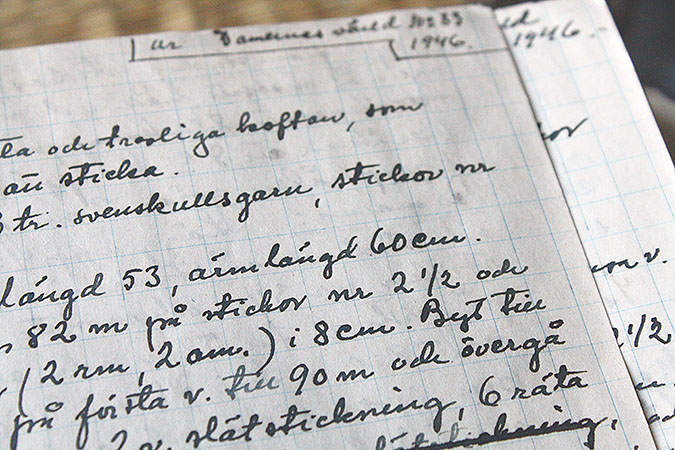 ur Damernas värld No 33
1946.
ta och trevliga koftan, som
an sticka.
3 tr. svenskullsgarn, stickor nr
längd 53, ärmlängd 60 cm.
82 m på stickor nr 2 1/2 och
(2 rm, 2 am.) i 8 cm. Byt till
på första v. till 90 m och övergå
2 v. slätstickning, 6 räta
slätstickning,
ld
1946.
or
v.
1/2